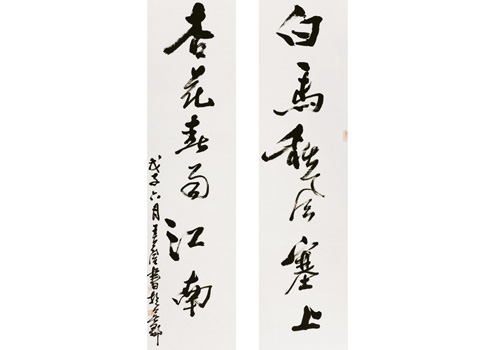 白馬秋風塞上
杏花春雨江南
戊子六月